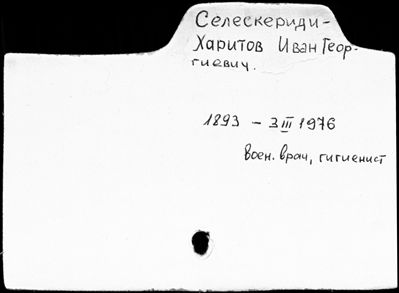 Селескериди-
Харитов Иван Геор-
гиевич.
1893 – 3 III 1976
Воен. врач, гигиенист